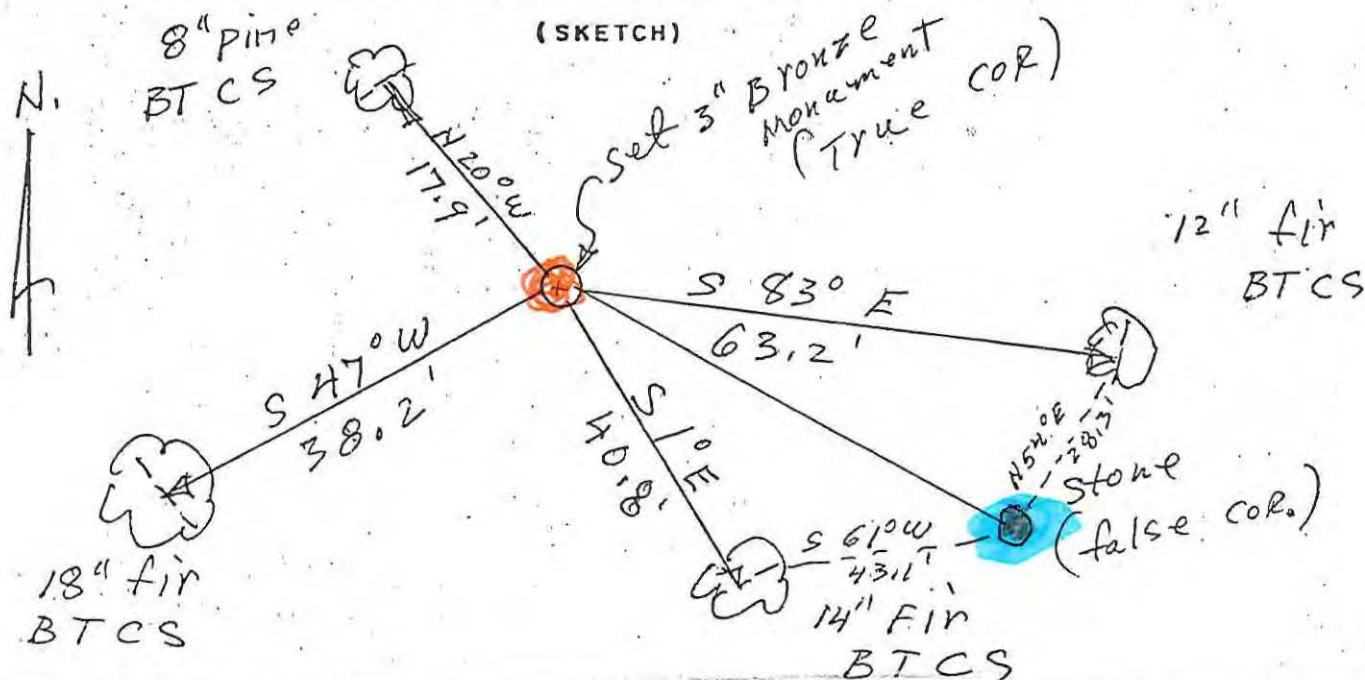 (SKETCH)
8" pine
BT CS
N.
Set 3" Bronze
Monument
(True COR)
N 20° W
17.9'
12" fir
BT CS
S 83° E
63.2'
S 47° W
38.2'
S 1° E
40.8'
28.3
Stone
(false COR.)
S 61° W
43.1'
18" fir
BT CS
14" Fir
BT CS